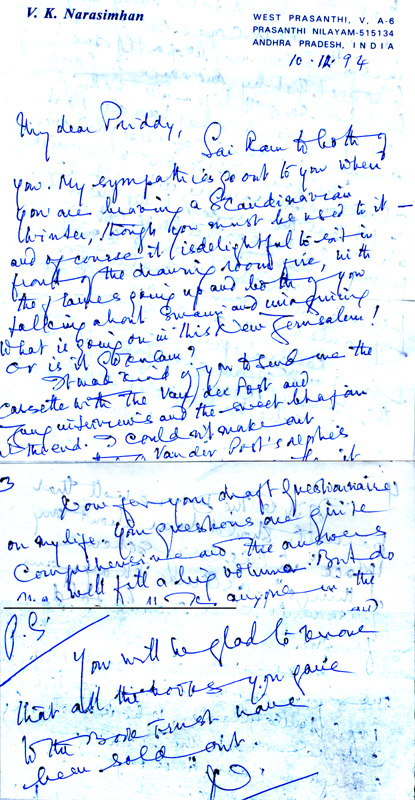 V. K. Narasimhan
WEST PRASANTHI, V, A-6
PRASANTHI NILAYAM-515134
ANDHRA PRADESH, INDIA
10.12.94
My dear Priddy,
Sai Ram to both of
you. My sympathies go out to you when
you are braving a Scandinavian
Winter, though you must be used to it —
and of course it is delightful to sit in
front of the drawing room fire, with
the flames going up and both of you
talking about Swami and imagining
What is going on in this New Jerusalem!
Or is it
It was kind of you to send me the
cassette with the Van der Post and
interviews and the sweet bhajan
at the end. I couldn't make out
Van der Post's
3
Now for your draft Questionnaire
on my life. Your questions are quite
Comprehensive and the answers
may well fill a big volume. But do
anyone in the
and
P.S.
You will be glad to know
that all the books you gave
to the Book Trust have
been sold out.